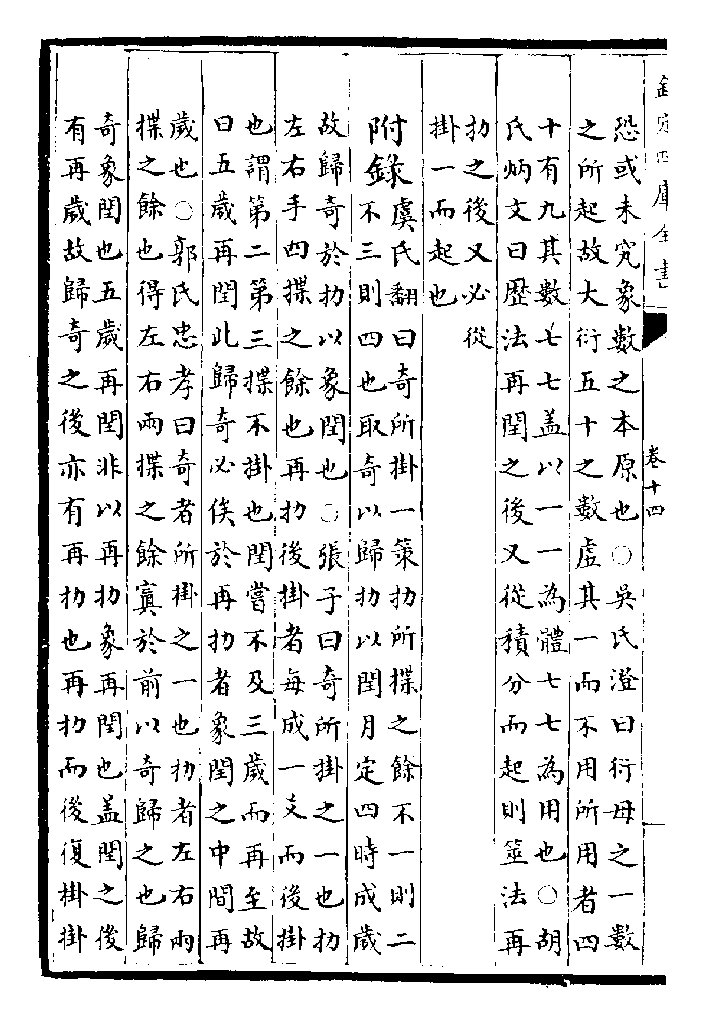 欽定四庫全書
卷十四
恐或未究象數之本原也○吳氏澄曰衍母之一數
之所起故大衍五十之數虛其一而不用所用者四
十有九其數七七盖以一一為體七七為用也○胡
氏炳文曰歴法再閏之後又從積分而起則筮法再
扐之後又必從
掛一而起也
附錄虞氏翻曰奇所掛一策扐所揲之餘不一則二
不三則四也取奇以歸扐以閏月定四時成歲
故歸奇於扐以象閏也○張子曰奇所掛之一也扐
左右手四揲之餘也再扐後掛者每成一爻而後掛
也謂第二第三揲不掛也閏嘗不及三歲而再至故
曰五歲再閏此歸奇必俟於再扐者象閏之中間再
歲也○郭氏忠孝曰奇者所掛之一也扐者左右兩
揲之餘也得左右兩揲之餘寘於前以奇歸之也歸
奇象閏也五歲再閏非以再扐象再閏也盖閏之後
有再歲故歸奇之後亦有再扐也再扐而後復掛掛